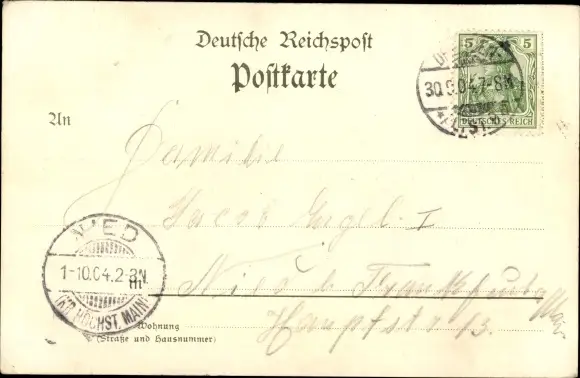 Deutsche Reichspost
Postkarte
5 5
DEUTSCHES REICH
30.9.04.7-8N.
An
Familie
Jacob Engel. I
NIED
1-10.04.2-3N.
(KR. HÖCHST. MAIN)
Nied b. Frankfurt a/Main
Hauptstr. 13.
Wohnung
(Straße und Hausnummer)